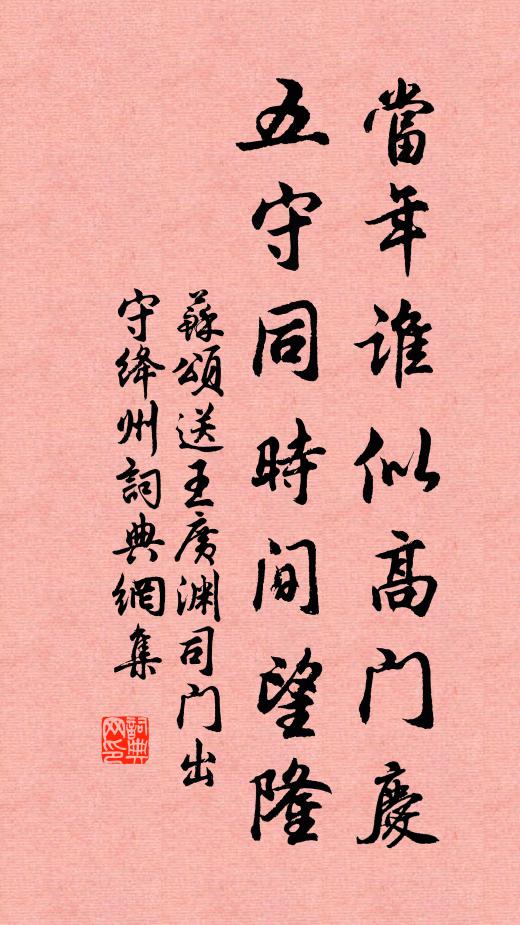 當年誰似高門慶
五守同時間望隆
蘇頌送王廣淵司门出
守絳州詞典網集
詞典
网印